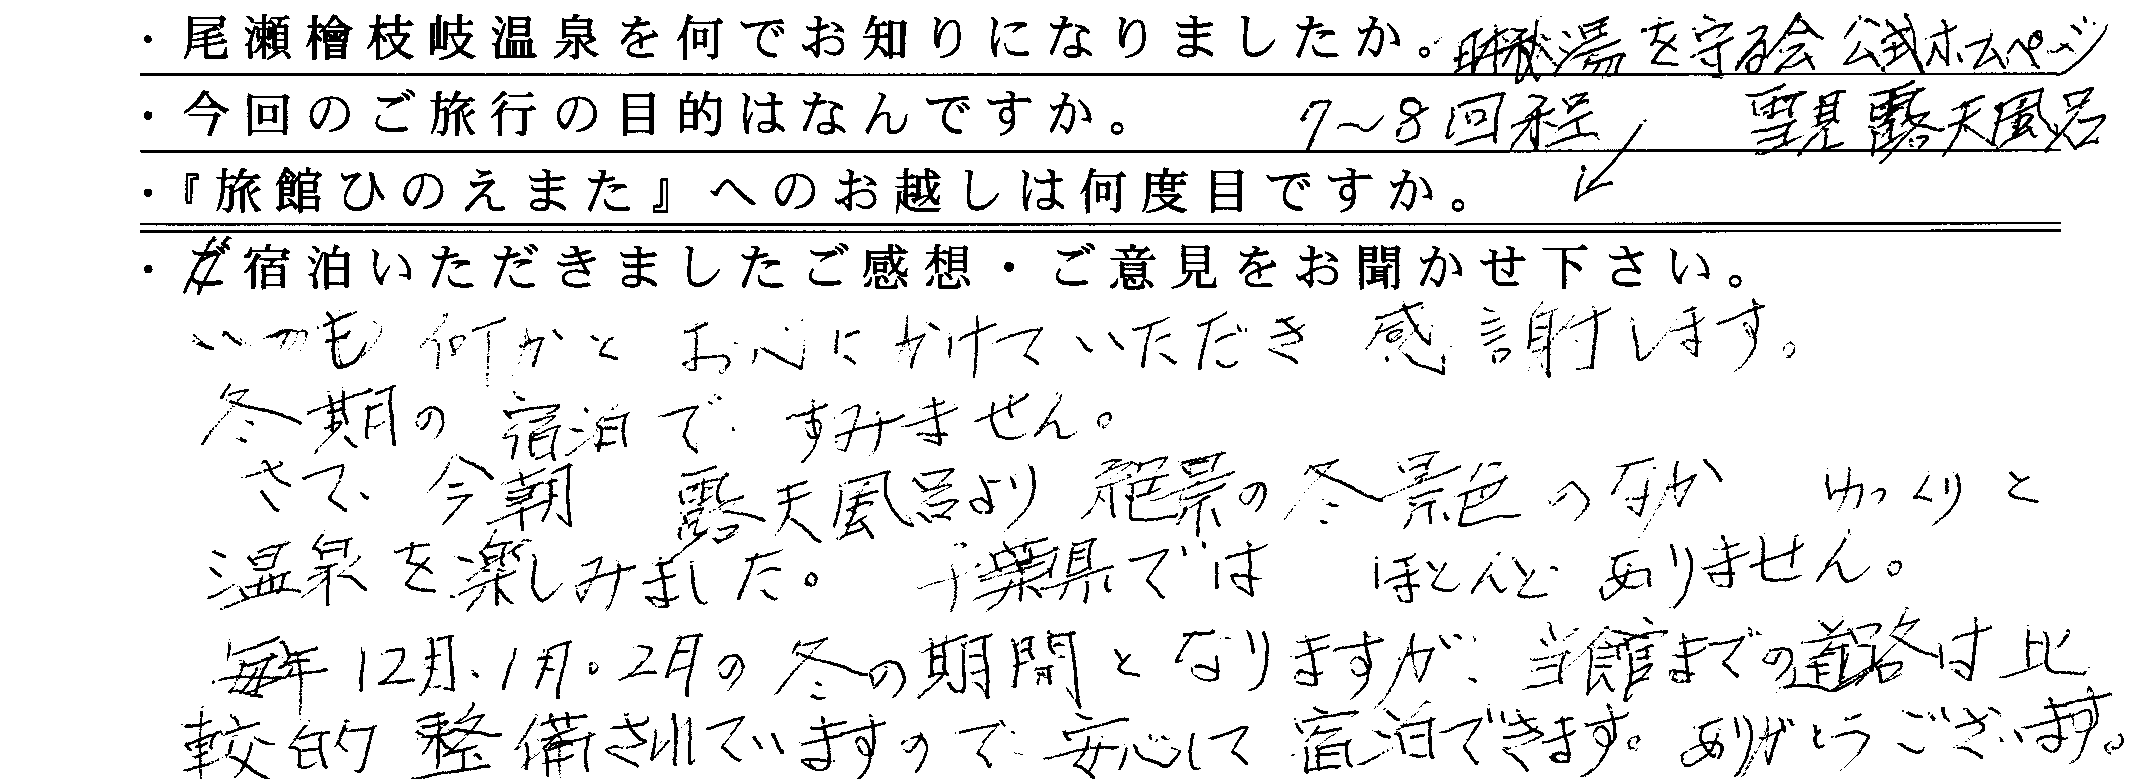 ・尾瀬檜枝岐温泉を何でお知りになりましたか。 日本秘湯を守る会 公式ホームページ
・今回のご旅行の目的はなんですか。 7～8回程 雪見露天風呂
・『旅館ひのえまた』へのお越しは何度目ですか。
・宿泊いただきましたご感想・ご意見をお聞かせ下さい。
いつも何かとお心にかけていただき感謝します。
冬期の宿泊ですみません。
さて、今朝 露天風呂より絶景の冬景色のなか ゆっくりと
温泉を楽しみました。千葉県では ほとんどありません。
毎年12月、1月。2月の冬の期間となりますが、当館までの道路は比
較的整備されていますので安心して宿泊できます。ありがとうございます。